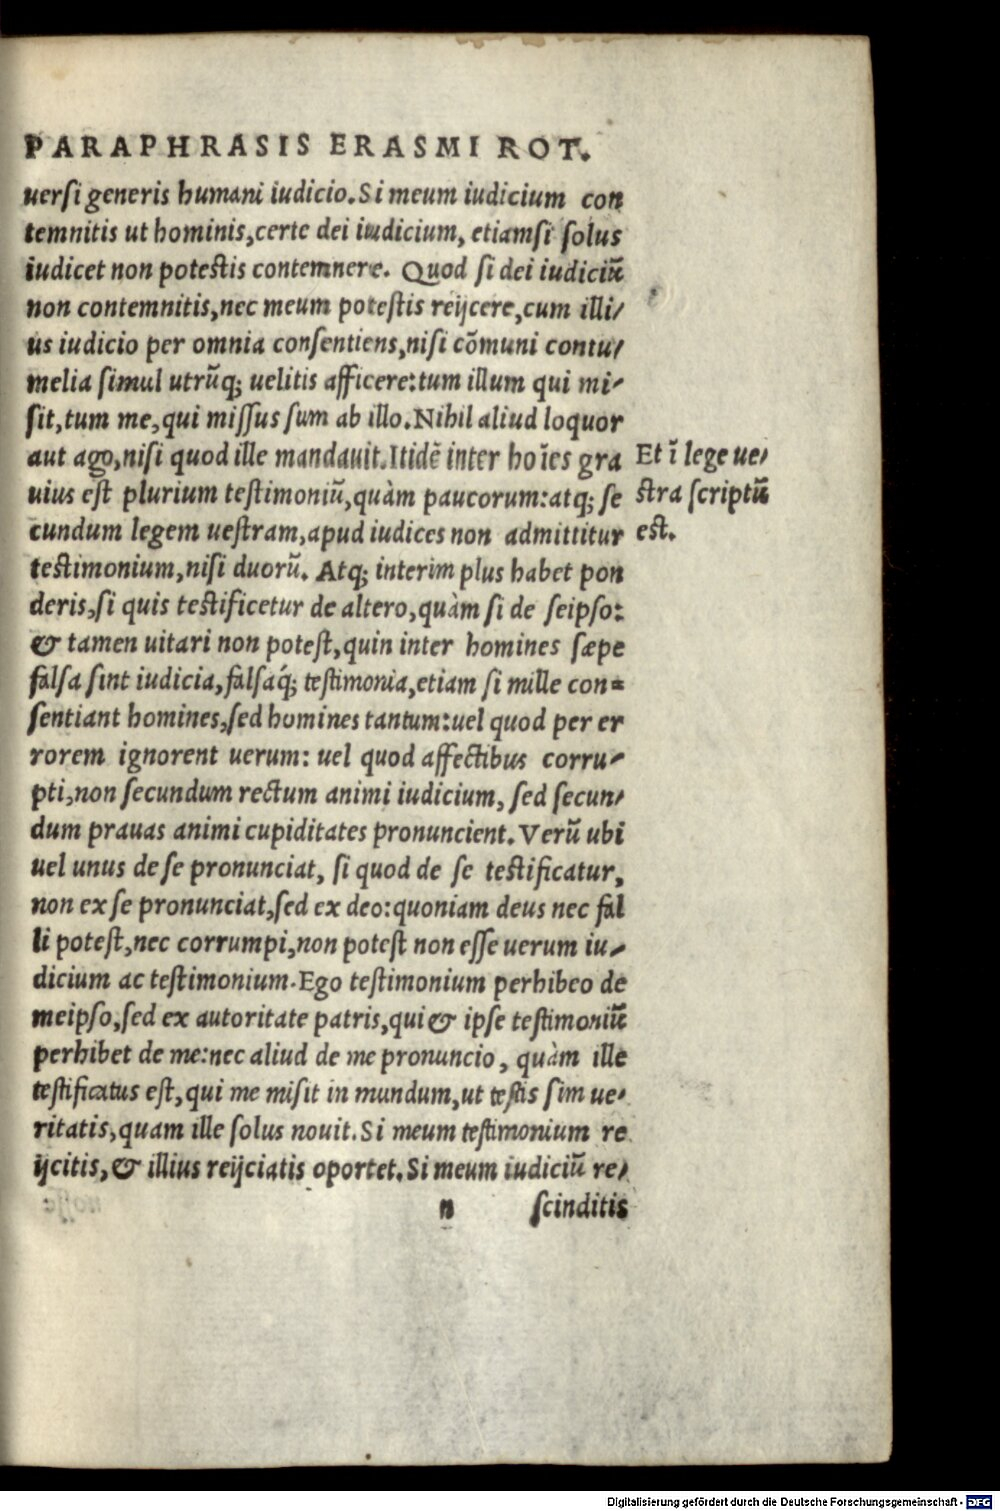 PARAPHRASIS ERASMI ROT.
uerſi generis humani iudicio. Si meum iudicium con
temnitis ut hominis, certe dei iudicium, etiamſi ſolus
iudicet non poteſtis contemnere. Quod ſi dei iudiciũ
non contemnitis, nec meum poteſtis reijcere, cum illi/
us iudicio per omnia conſentiens, niſi cõmuni contu/
melia ſimul utrũq; uelitis afficere: tum illum qui mi/
ſit, tum me, qui miſſus ſum ab illo. Nihil aliud loquor
aut ago, niſi quod ille mandauit. Itidẽ inter hoĩes gra
uius eſt plurium teſtimoniũ, quàm paucorum: atq; ſe
cundum legem ueſtram, apud iudices non admittitur
teſtimonium, niſi duorũ. Atq; interim plus habet pon
deris, ſi quis teſtificetur de altero, quàm ſi de ſeipſo:
& tamen uitari non poteſt, quin inter homines ſæpe
falſa ſint iudicia, falſaq́; teſtimonia, etiam ſi mille con=
ſentiant homines, ſed homines tantum: uel quod per er
rorem ignorent uerum: uel quod affectibus corru/
pti, non ſecundum rectum animi iudicium, ſed ſecun/
dum prauas animi cupiditates pronuncient. Verũ ubi
uel unus de ſe pronunciat, ſi quod de ſe teſtificatur,
non ex ſe pronunciat, ſed ex deo: quoniam deus nec fal
li poteſt, nec corrumpi, non poteſt non eſſe uerum iu/
dicium ac teſtimonium. Ego teſtimonium perhibeo de
meipſo, ſed ex autoritate patris, qui & ipſe teſtimoniũ
perhibet de me: nec aliud de me pronuncio, quàm ille
teſtificatus eſt, qui me miſit in mundum, ut teſtis ſim ue/
ritatis, quam ille ſolus nouit. Si meum teſtimonium re
ijcitis, & illius reijciatis oportet. Si meum iudiciũ re/
n ſcinditis
Et ĩ lege ue/
ſtra ſcriptũ
eſt.
Digitalisierung gefördert durch die Deutsche Forschungsgemeinschaft - DFG